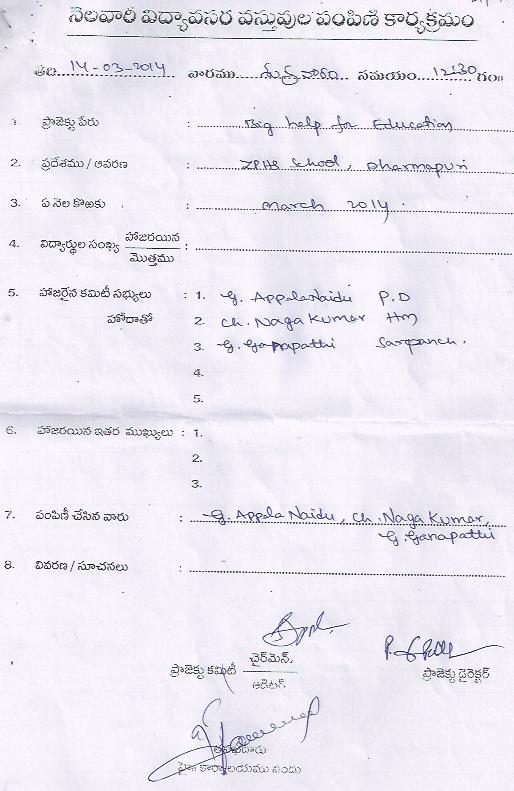 నెలవారీ విద్యావసర వస్తువుల పంపిణీ కార్యక్రమం
తేది... 14-03-2014 వారము శుక్రవారం సమయం 12:30 గం॥
1. ప్రాజెక్టు పేరు : Big help for Education
2. ప్రదేశము / ఆవరణ : ZPHS School, Dharmapuri
3. ఏ నెల కొఱకు : march 2014.
4. విద్యార్థుల సంఖ్య హాజరయిన / మొత్తము :
5. హాజరైన కమిటీ సభ్యులు : 1. G. AppalaNaidu P.D
హోదాతో 2. Ch. Naga Kumar Hm
3. G. Ganapathi Sarpanch.
4.
5.
6. హాజరయిన ఇతర ముఖ్యులు : 1.
2.
3.
7. పంపిణీ చేసిన వారు : G. Appala Naidu, Ch. Naga Kumar,
G. Ganapathi
8. వివరణ / సూచనలు :
ప్రాజెక్టు కమిటీ చైర్‌మెన్. ప్రాజెక్టు డైరెక్టర్
ఆడిటర్